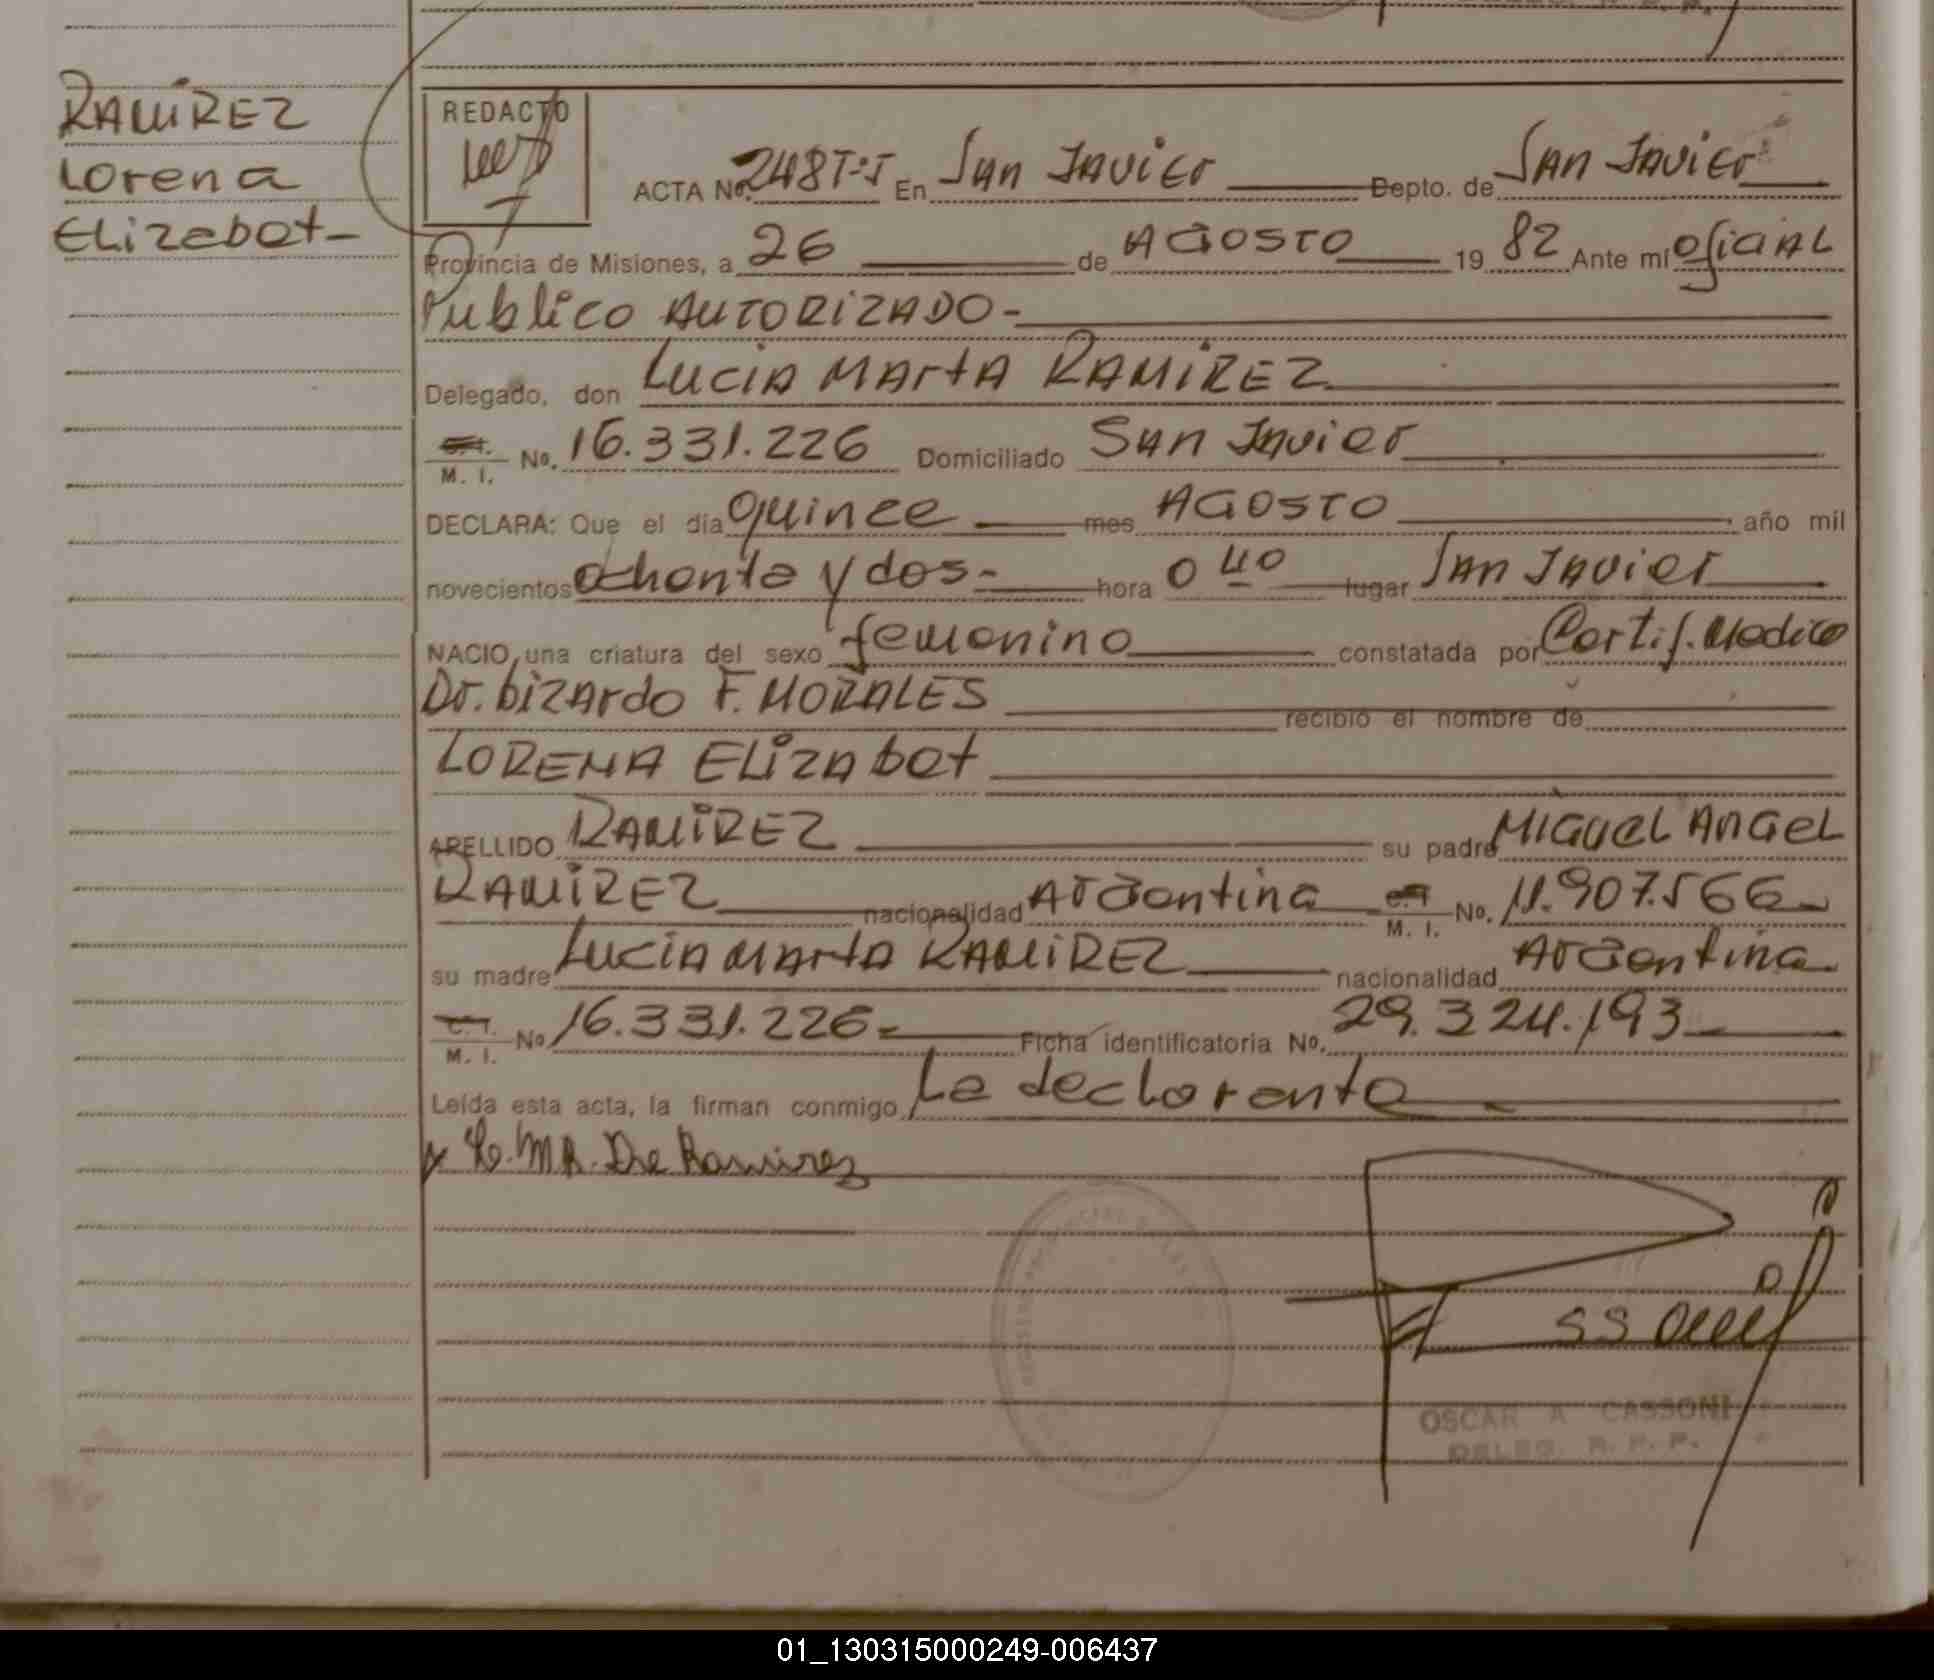 RAMIREZ
Lorena
Elizebet-
REDACTO
ACTA No. 248 T:I En San Javier Depto. de San Javier
Provincia de Misiones, a 26 de Agosto 19 82 Ante mi oficial
Publico AUTORIZADO-
Delegado, don Lucia Marta RAMIREZ
M. I. No. 16.331.226 Domiciliado San Javier
DECLARA: Que el día quince mes AGOSTO año mil
novecientos ochenta y dos- hora 0 40 lugar San Javier
NACIO una criatura del sexo femenino constatada por Certif. Medico
Dr. bizardo F. MORALES recibió el nombre de
LORENA ELizabet
APELLIDO RAMIREZ su padre MIGUEL ANGEL
RAMIREZ nacionalidad Argentina M. I. No. 11.907.566-
su madre Lucia Marta RAMIREZ nacionalidad Argentina-
M. I. No 16.331.226- Ficha identificatoria No. 29.324.193
Leída esta acta, la firman conmigo, La declarante
L. M R. De Ramirez
OSCAR A CASSONI
DELEG. R. P. P.
01_130315000249-006437